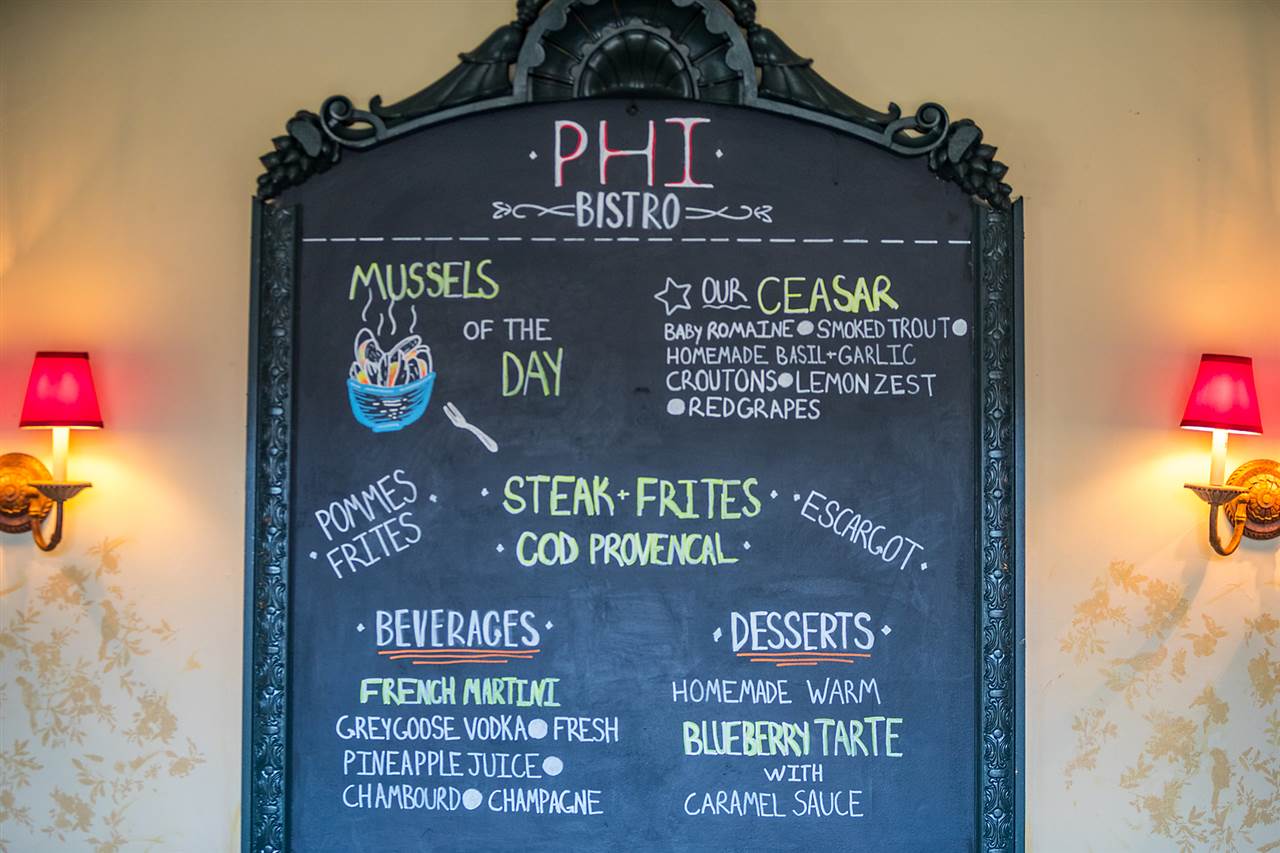 PHI
BISTRO
MUSSELS
OF THE
DAY
OUR CEASAR
BABY ROMAINE • SMOKED TROUT •
HOMEMADE BASIL + GARLIC
CROUTONS • LEMON ZEST
• RED GRAPES
POMMES
• FRITES •
• STEAK + FRITES •
• COD PROVENCAL •
• ESCARGOT •
• BEVERAGES •
FRENCH MARTINI
GREYGOOSE VODKA • FRESH
PINEAPPLE JUICE •
CHAMBOURD • CHAMPAGNE
• DESSERTS •
HOMEMADE WARM
BLUEBERRY TARTE
WITH
CARAMEL SAUCE